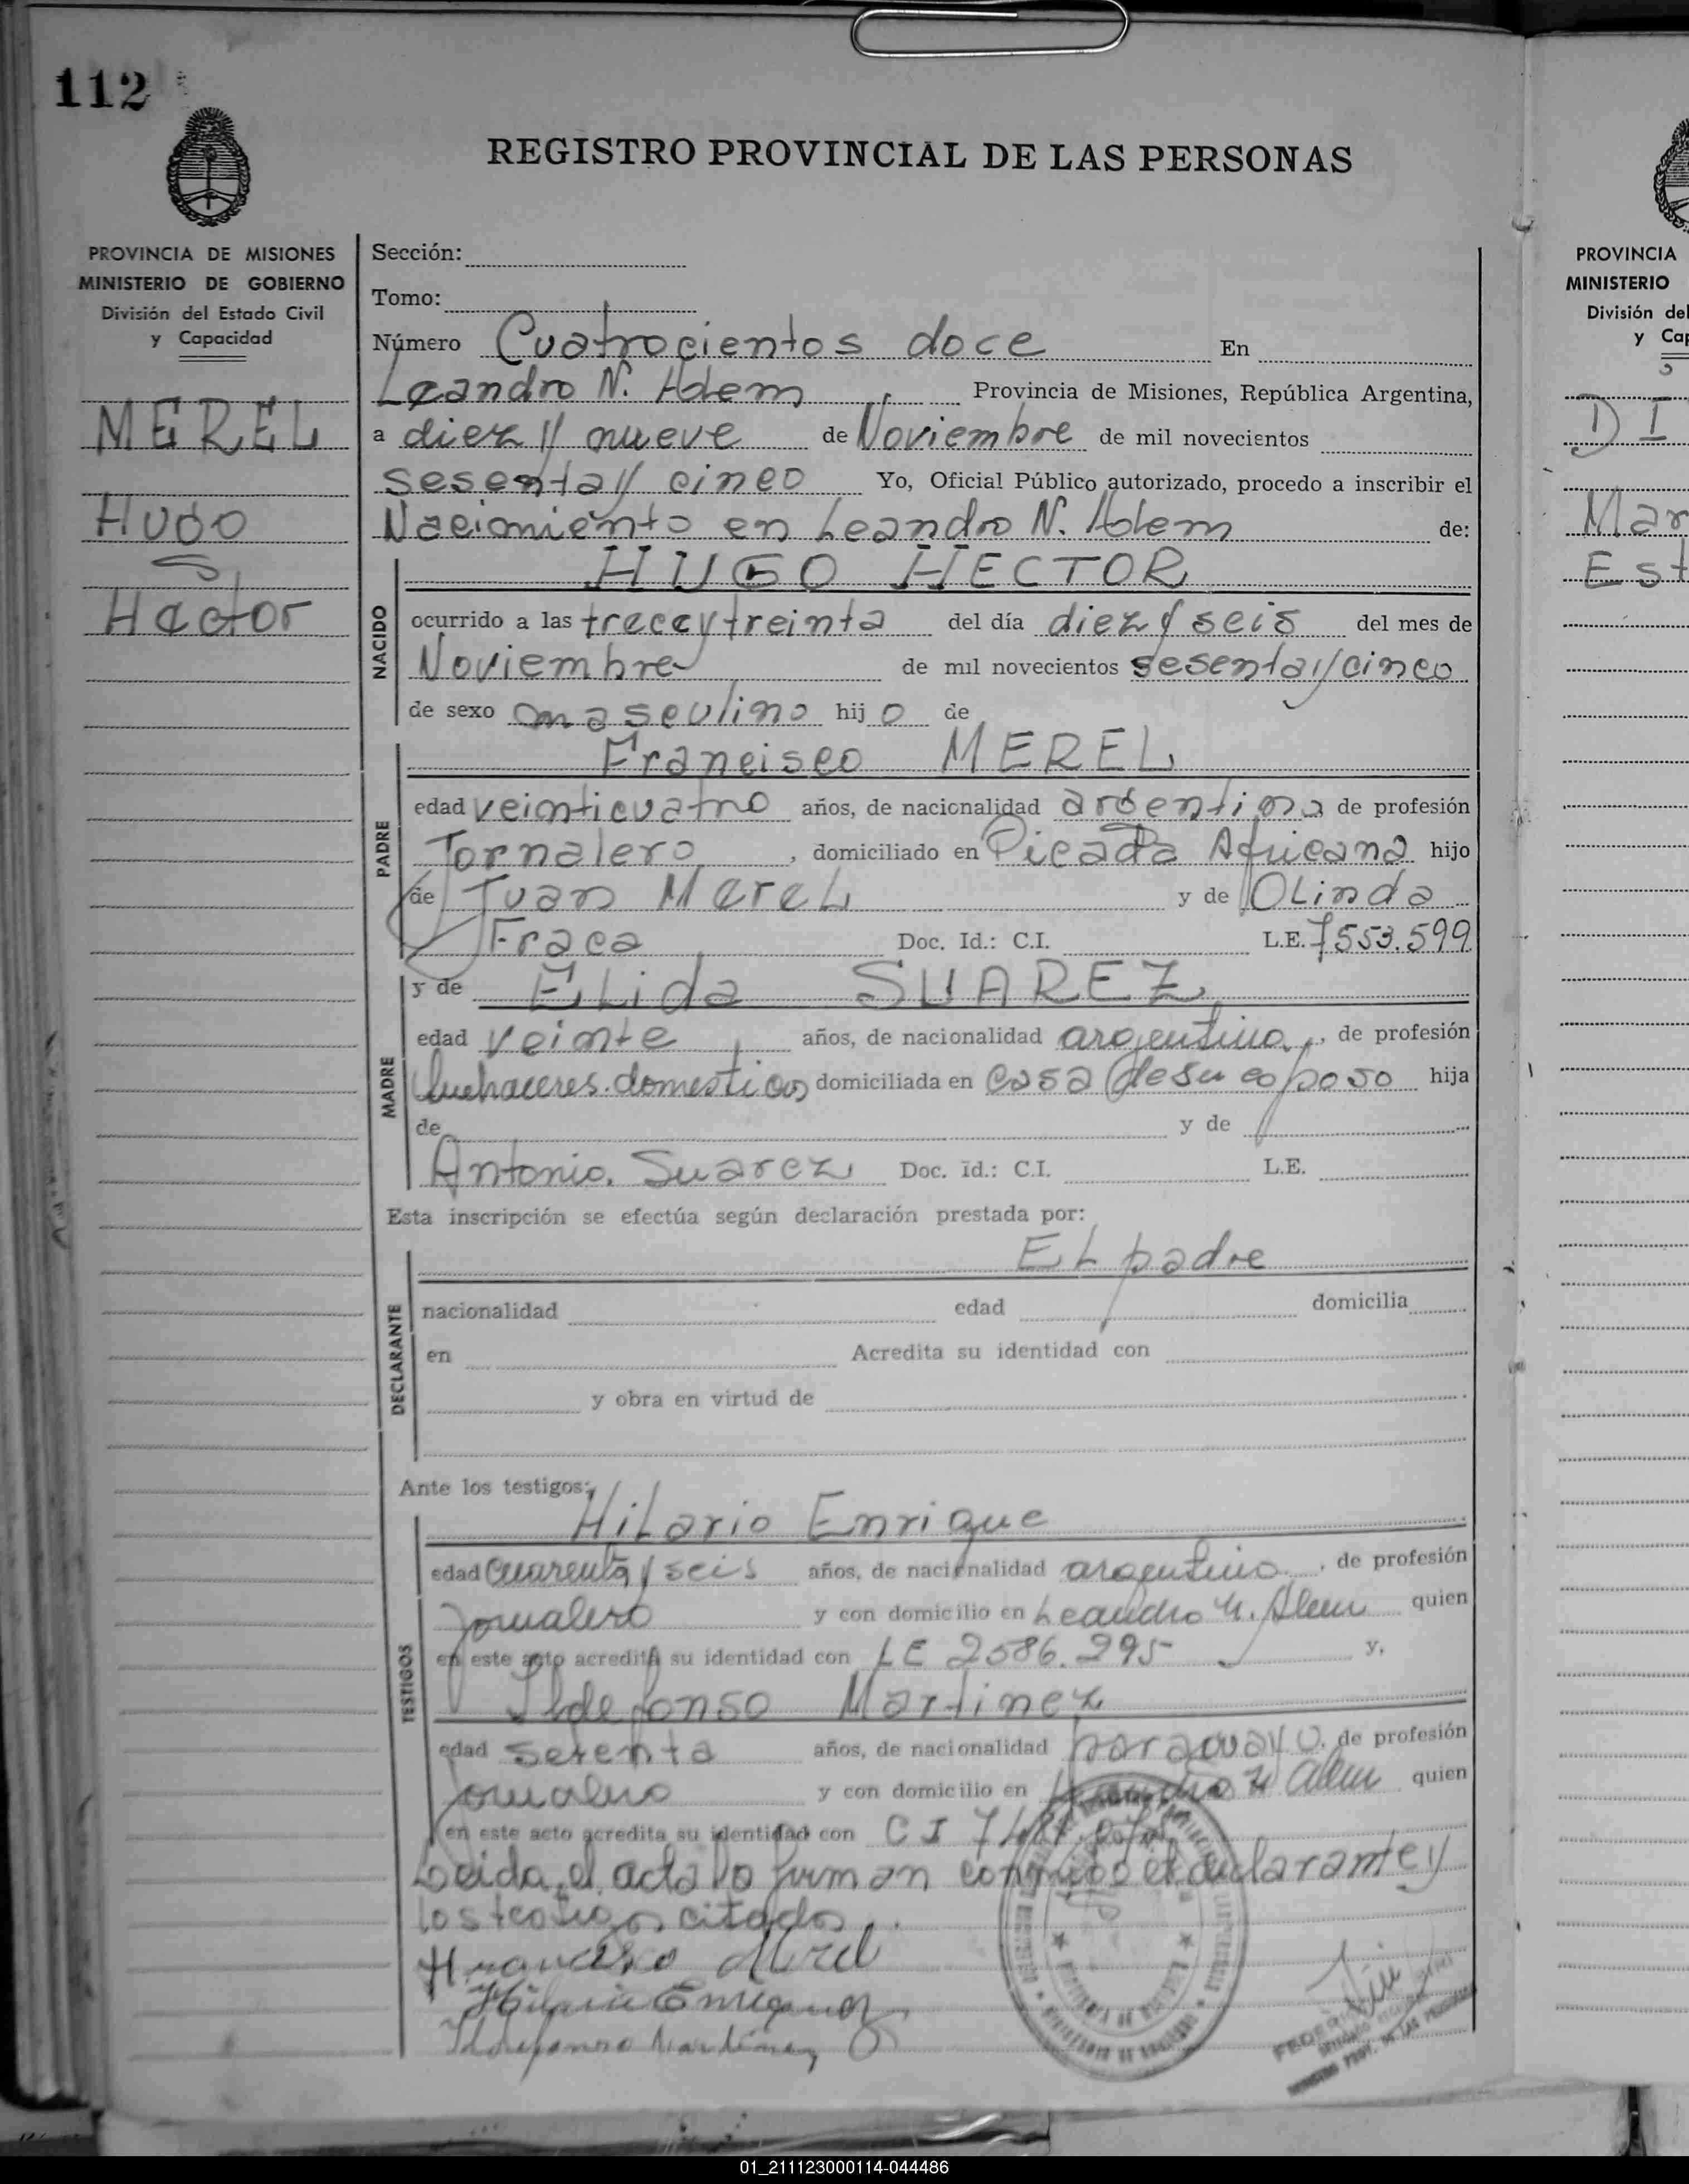 112
REGISTRO PROVINCIAL DE LAS PERSONAS
PROVINCIA DE MISIONES
MINISTERIO DE GOBIERNO
División del Estado Civil
y Capacidad
MEREL
Hugo
Hector
Sección:
Tomo:
Número Cuatrocientos doce En
Leandro N. Alem Provincia de Misiones, República Argentina,
a diez y nueve de Noviembre de mil novecientos
sesenta y cinco Yo, Oficial Público autorizado, procedo a inscribir el
Nacimiento en Leandro N. Alem de:
NACIDO
HUGO HECTOR
ocurrido a las trece y treinta del día diez y seis del mes de
Noviembre de mil novecientos sesenta y cinco
de sexo masculino hij o de
PADRE
Francisco MEREL
edad veinticuatro años, de nacionalidad argentina de profesión
Jornalero, domiciliado en Picada Africana hijo
de Juan Merel y de Olinda
Fraca Doc. Id.: C.I. L.E. 7553.599
MADRE
y de Elida SUAREZ
edad veinte años, de nacionalidad argentina, de profesión
Quehaceres domesticos domiciliada en casa de su esposo hija
de y de
Antonia Suarez Doc. Id.: C.I. L.E.
Esta inscripción se efectúa según declaración prestada por:
DECLARANTE
El padre
nacionalidad edad domicilia
en Acredita su identidad con
y obra en virtud de
Ante los testigos:
TESTIGOS
Hilario Enrique
edad cuarenta y seis años, de nacionalidad argentino, de profesión
Jornalero y con domicilio en Leandro N. Alem quien
en este acto acredita su identidad con LE 2586.295 y,
Ildefonso Martinez
edad setenta años, de nacionalidad paraguayo, de profesión
Jornalero y con domicilio en Leandro N Alem quien
en este acto acredita su identidad con C I
Leida el acta la firman conmigo el declarante y
los testigos citados.
Francisco Merel
Hilario Enrique
Ildefonso Martinez
PROVINCIA
MINISTERIO
División del
y Cap
DI
Mar
Est
01_211123000114-044486